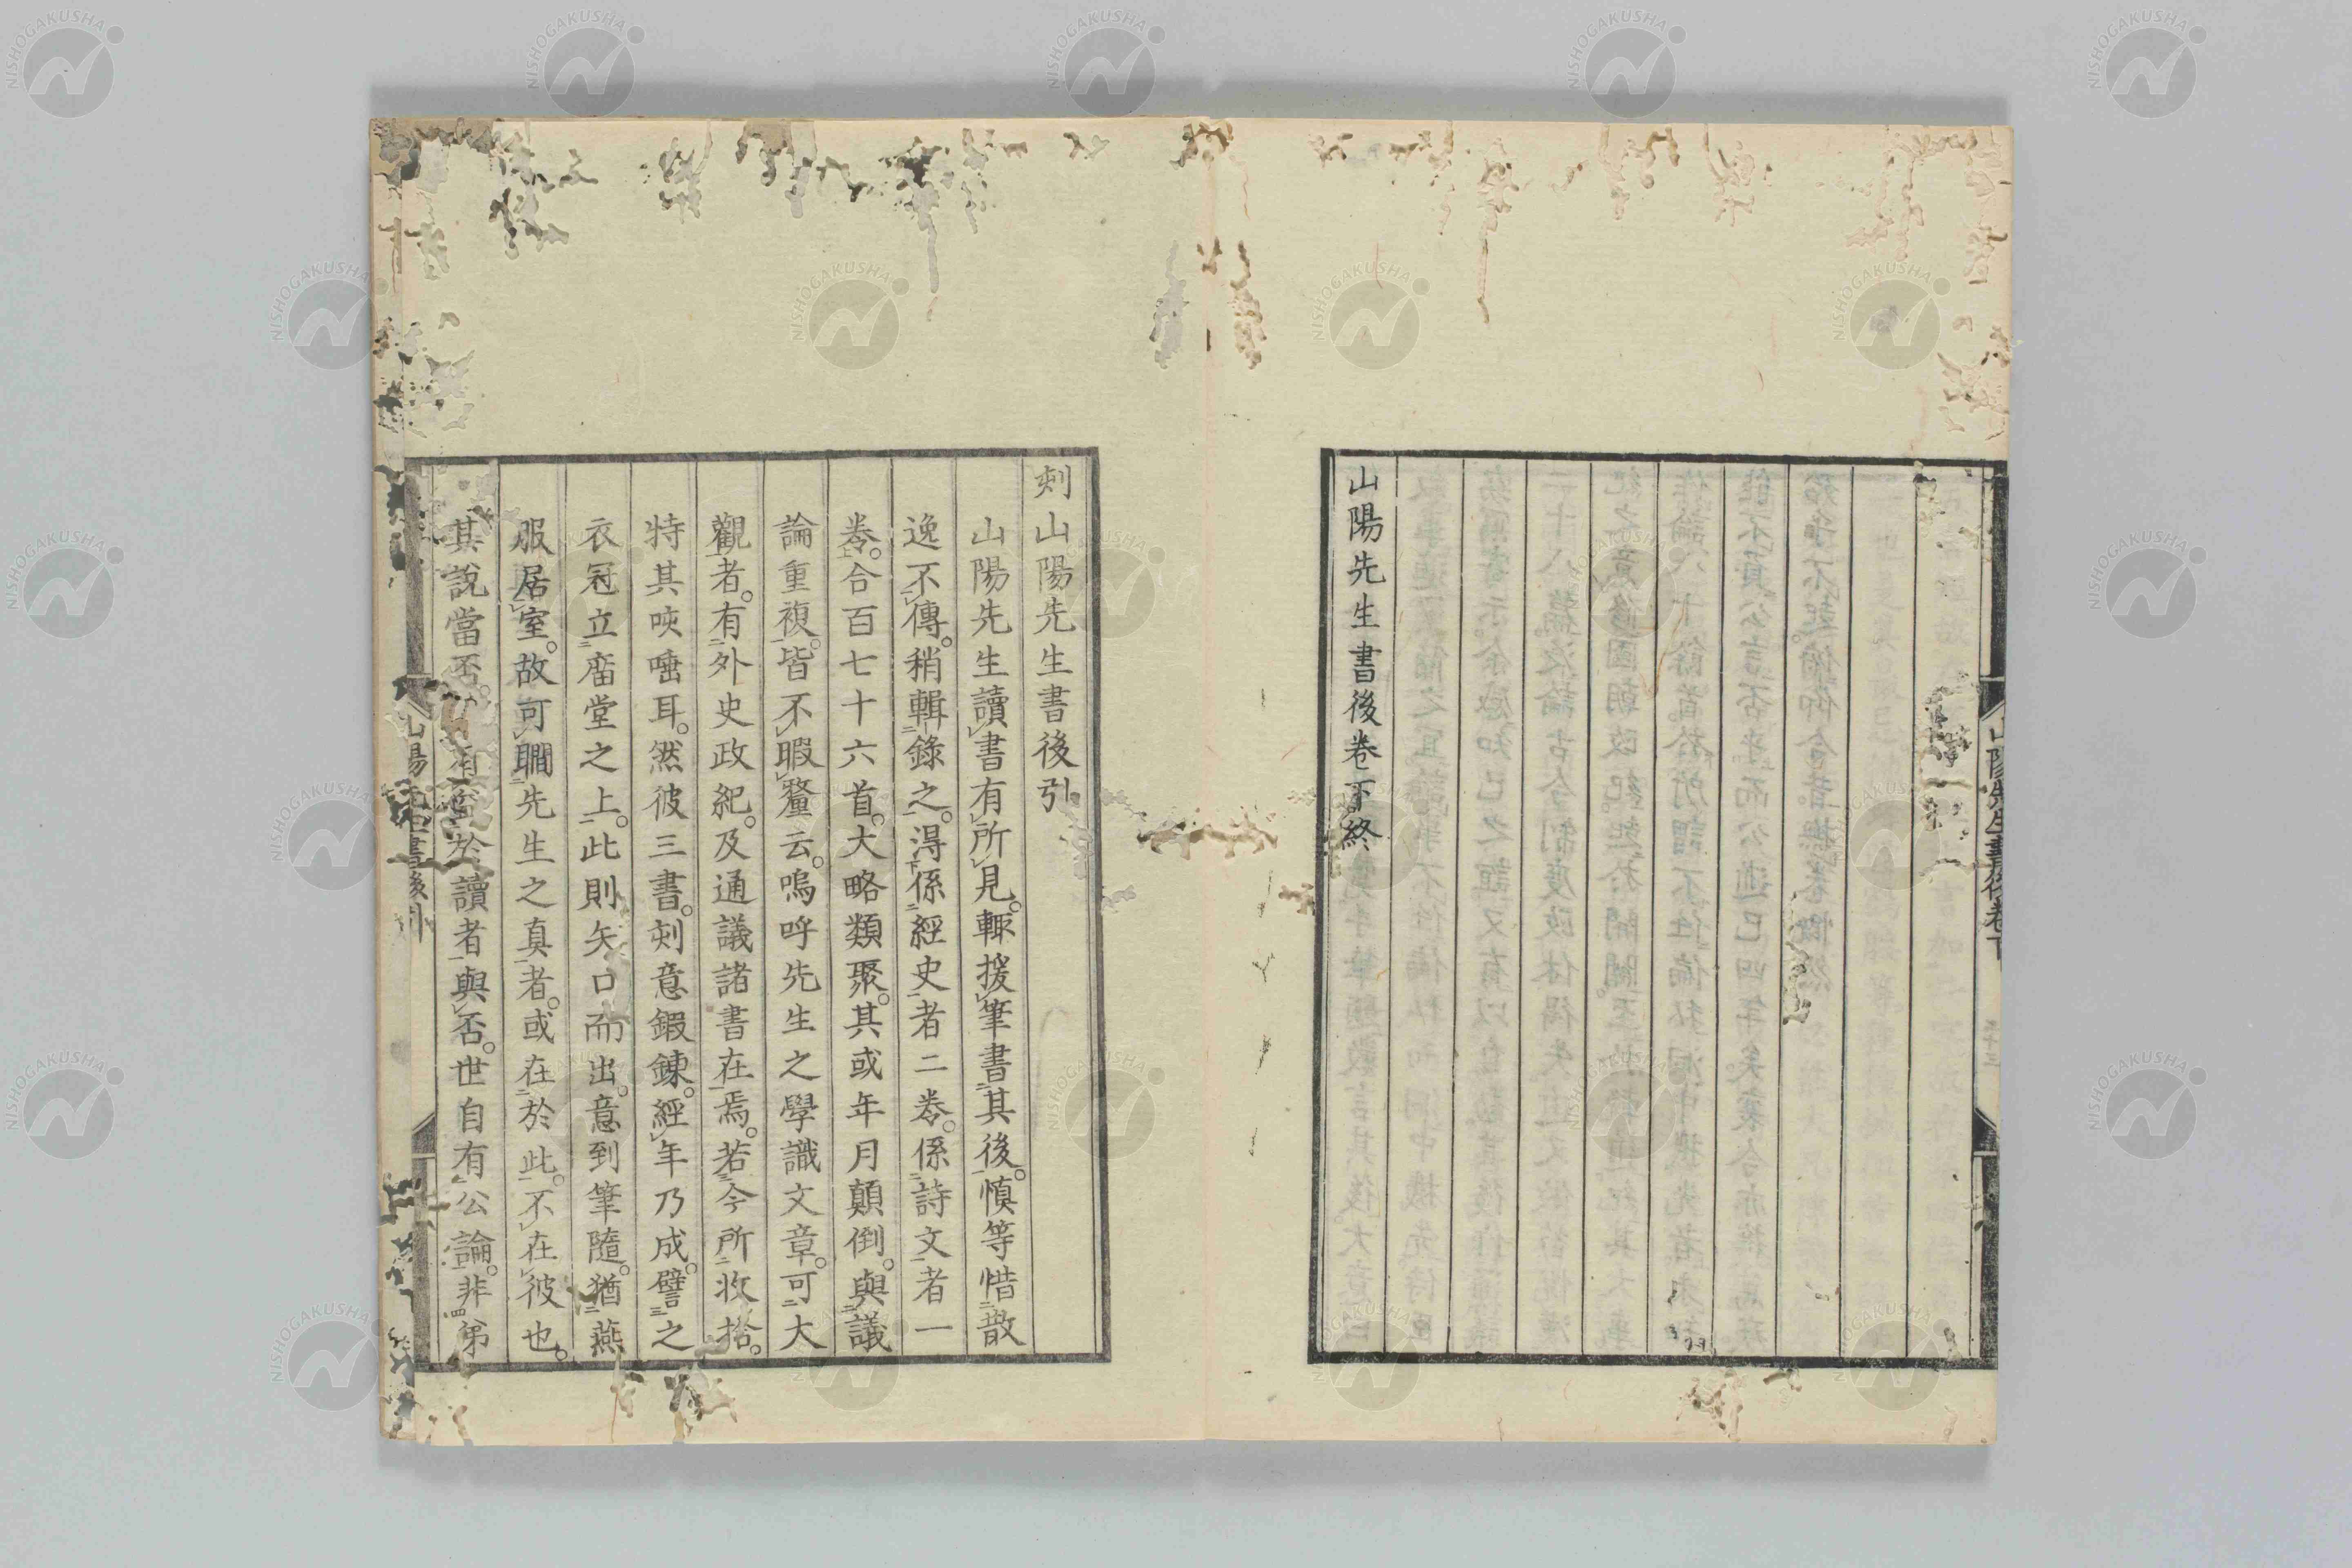 山陽先生書後卷下
山陽先生書後卷下終
刻山陽先生書後引
山陽先生讀書有所見。輙援筆書其後。慎等惜散
逸不傳。稍輯錄之。得係經史者二卷。係詩文者一
卷。合百七十六首。大略類聚。其或年月顛倒。與議
論重複。皆不暇釐云。嗚呼先生之學識文章。可大
觀者。有外史政紀。及通議諸書在焉。若今所收拾。
特其咳唾耳。然彼三書。刻意鍜鍊。經年乃成。譬之
衣冠立廟堂之上。此則矢口而出。意到筆隨。猶燕
服居室。故可瞷先生之真者。或在於此。不在彼也。
其說當否。有益於讀者與否。世自有公論。非弟
山陽先生書後引
NISHOGAKUSHA